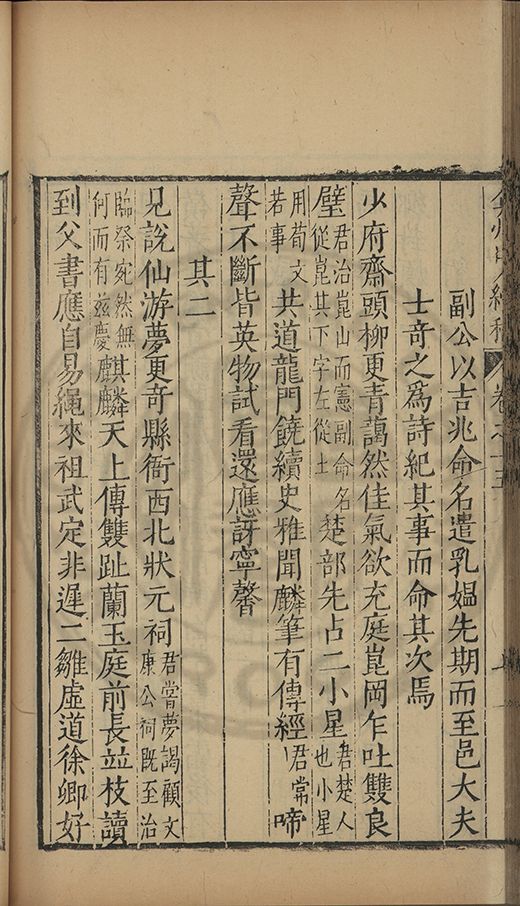 卷之十五
副公以吉兆命名遣乳媼先期而至邑大夫
士奇之爲詩紀其事而命其次焉
少府齋頭柳更青藹然佳氣欲充庭崑岡乍吐雙良
璧君治崑山而憲副命名從崑其下字左從土楚部先占二小星君楚人也小星
用荀文若事共道龍門饒續史雅聞麟筆有傳經君常啼
聲不斷皆英物試看還應訝寧馨
其二
見說仙游夢更奇縣衙西北狀元祠君嘗夢謁顧文康公祠既至治
臨祭宛然無何而有兹慶麒麟天上傳雙趾蘭玉庭前長並枝讀
到父書應自易繩來祖武定非遲二雛虛道徐卿好